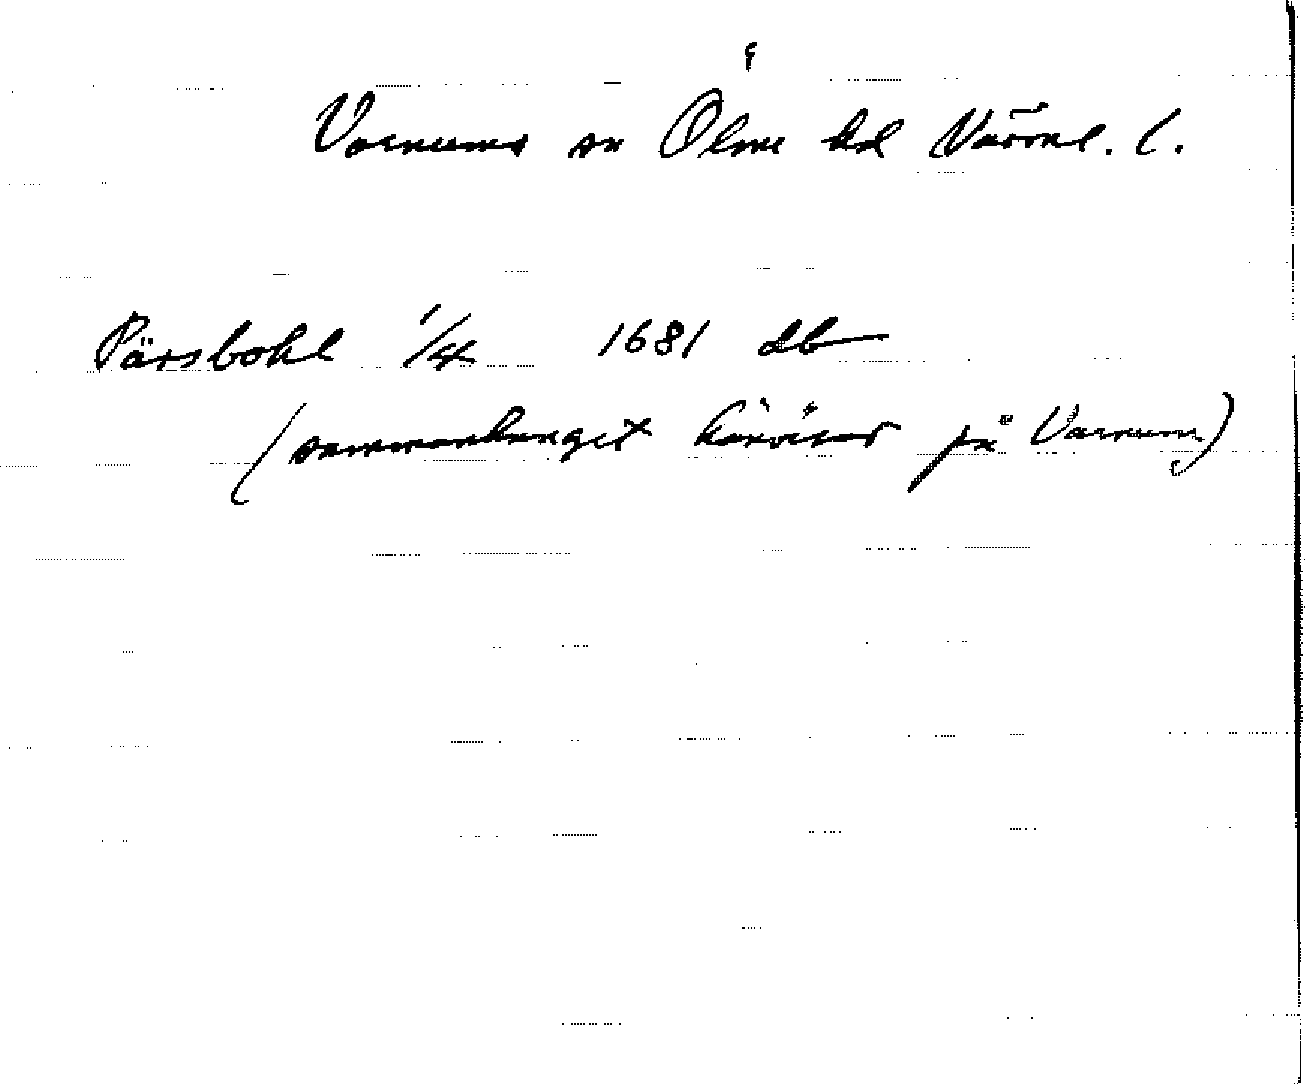 Varnums sn Ölme hd Värml. l.
Pärsbohl 1/4 1681 db
(sammanhanget hänvisar på Varnum)